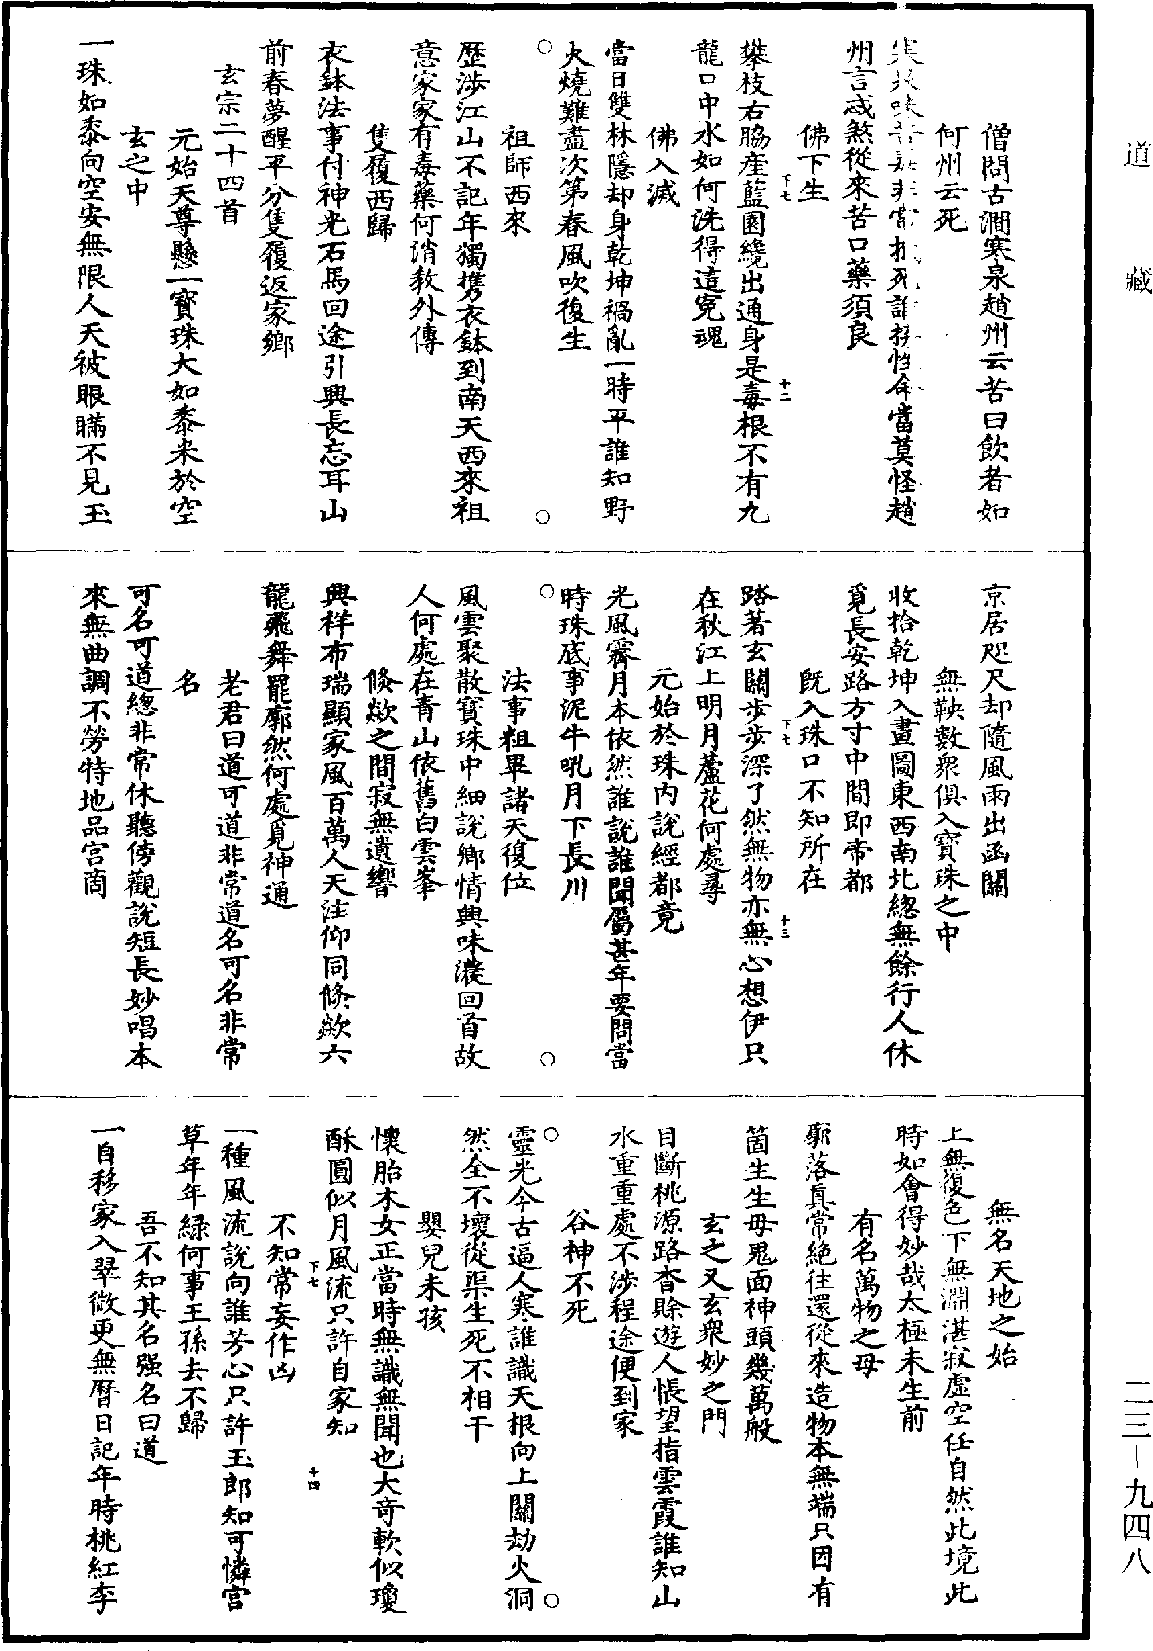 道藏
僧問古澗寒泉趙州云苦曰飲者如
何州云死
非常
死誰
命當莫怪趙
州言忒煞從來苦口藥須良
佛下生
攀枝右脇産藍園纔出通身是毒根不有九
龍口中水如何洗得這寃魂
佛入滅
當日雙林隱却身乾坤禍亂一時平誰知野
火燒難盡次第春風吹復生
祖師西來
歷涉江山不記年獨携衣鉢到南天西來祖
意家家有毒藥何消教外傳
隻履西歸
衣鉢法事付神光石馬回途引興長忘耳山
前春夢醒平分隻履返家鄉
玄宗二十四首
元始天尊懸一寶珠大如黍米於空
玄之中
一珠如黍向空安無限人天被眼瞞不見玉
下七
十二
京居咫尺却隨風雨出函關
無鞅數衆俱入寶珠之中
收拾乾坤入畫圖東西南北緫無餘行人休
覓長安路方寸中間即帝都
旣入珠口不知所在
踏著玄關步步深了然無物亦無心想伊只
在秋江上明月蘆花何處尋
元始於珠内說經都竟
光風霽月本依然誰說誰聞屬甚年要問當
時珠底事泥牛吼月下長川
法事粗畢諸天復位
風雲聚散寶珠中細說鄉情興味濃回首故
人何處在青山依舊白雲峯
倐歘之間寂無遺響
興祥布瑞顯家風百萬人天注仰同倐歘六
龍飛舞罷廓然何處覓神通
老君曰道可道非常道名可名非常
名
可名可道緫非常休聽傍觀說短長妙唱本
來無曲調不勞特地品宫商
下七
十三
無名天地之始
上無復色下無淵湛寂虛空任自然此境此
時如會得妙哉太極未生前
有名萬物之母
廓落真常絶往還從來造物本無端只因有
箇生生母鬼面神頭幾萬般
玄之又玄衆妙之門
目斷桃源路杳賒遊人悵望指雲霞誰知山
水重重處不涉程途便到家
谷神不死
靈光今古逼人寒誰識天根向上關劫火洞
然全不壞從渠生死不相干
嬰兒未孩
懷胎木女正當時無識無聞也大奇軟似瓊
酥圓似月風流只許自家知
不知常妄作凶
一種風流說向誰芳心只許玉郎知可憐宫
草年年緑何事王孫去不歸
吾不知其名强名曰道
一自移家入翠微更無曆日記年時桃紅李
下七
十四
二三—九四八